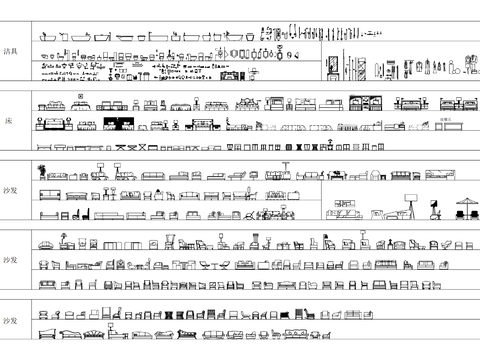 洁具
床
沙发
沙发
沙发